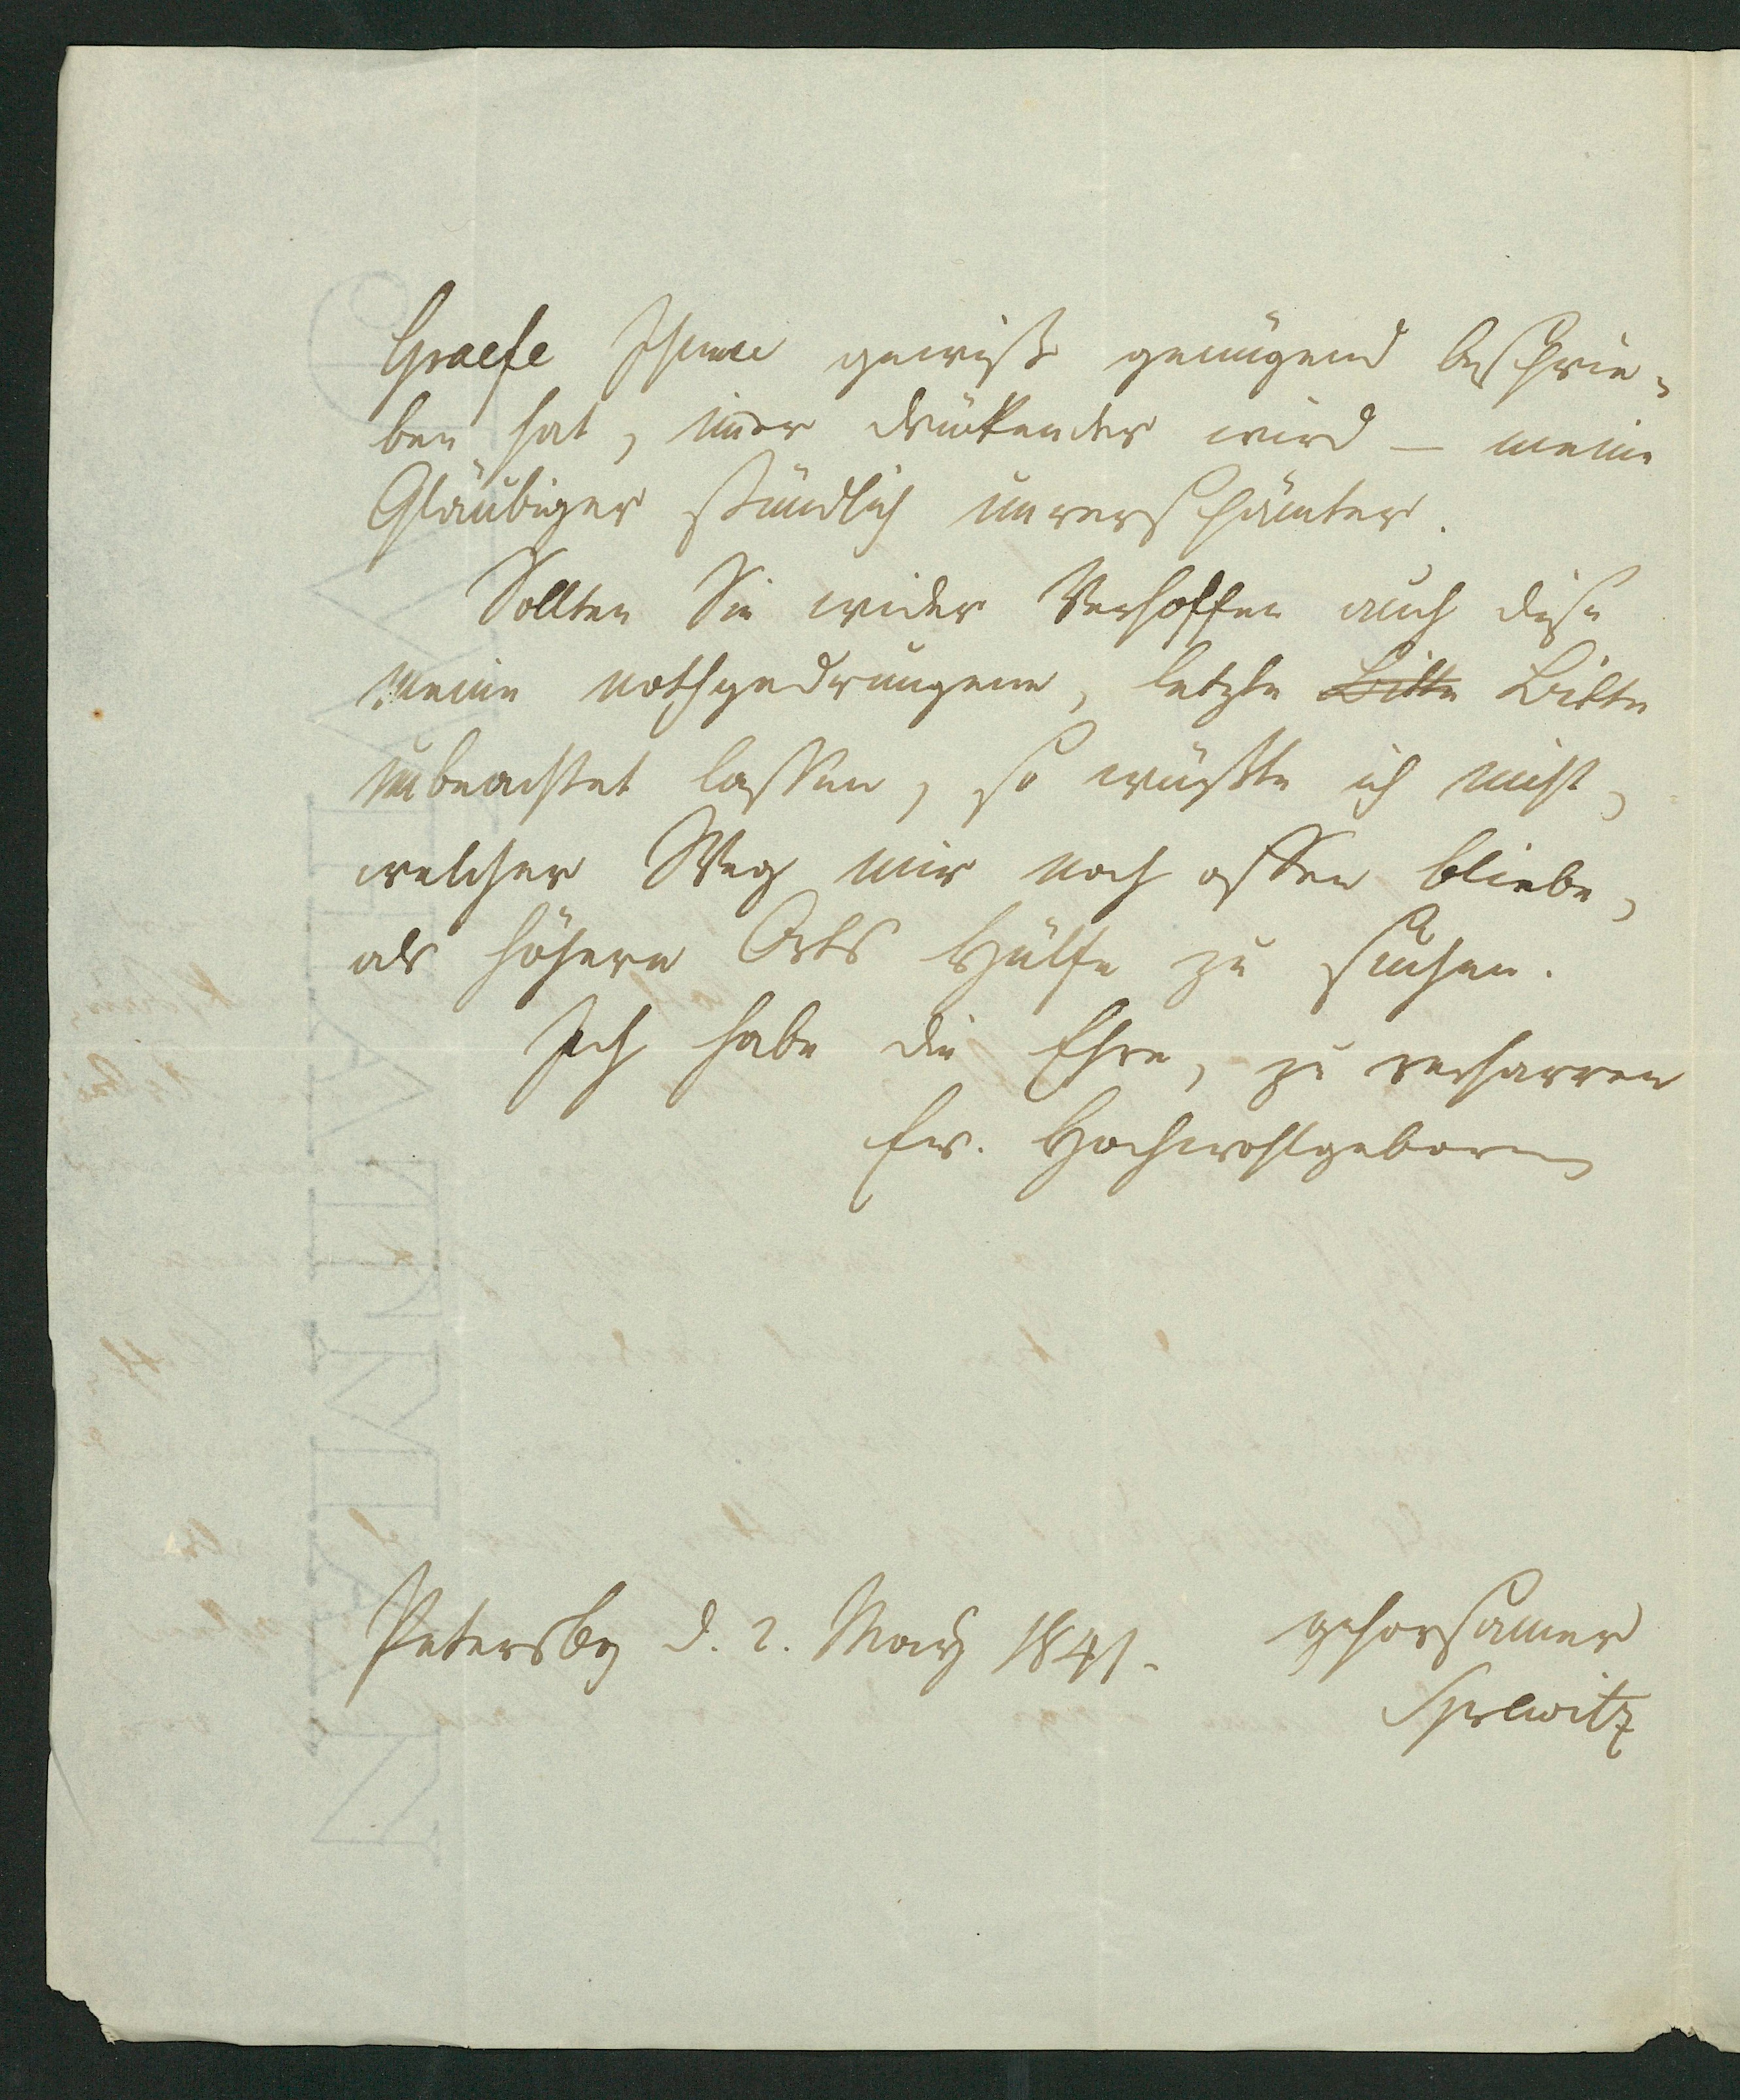 Graefe Ihnen gewiß genügend beschrie-
ben hat, im̅er drückender wird – meine
Gläubiger stündlich unverschämter.
Sollten Sie wider Verhoffen auch diese
meine nothgedrungene, letzte Bitte Bitte
unbeachtet lassen, so wüßte ich nicht,
welcher Weg mir noch offen bliebe,
als höhern Orts Hülfe zu suchen.
Ich habe die Ehre, zu verharren
Ew. Hochwohlgeboren
Petersbg d. 2. März 1841. gehorsamer
Sprewitz